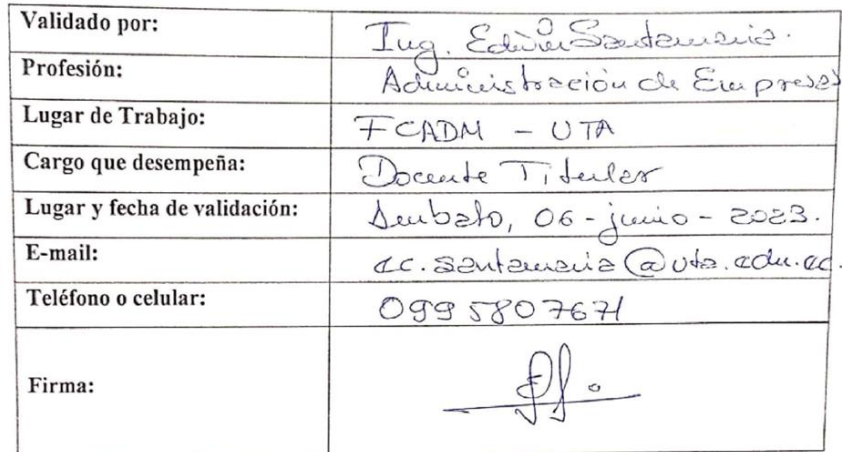 Validado por: Ing. Edwin Santamaria.
Profesión: Administración de Empresas
Lugar de Trabajo: FCADM - UTA
Cargo que desempeña: Docente Titular
Lugar y fecha de validación: Ambato, 06 - junio - 2023.
E-mail: ec.santamaria@uta.edu.ec.
Teléfono o celular: 0995807671
Firma: